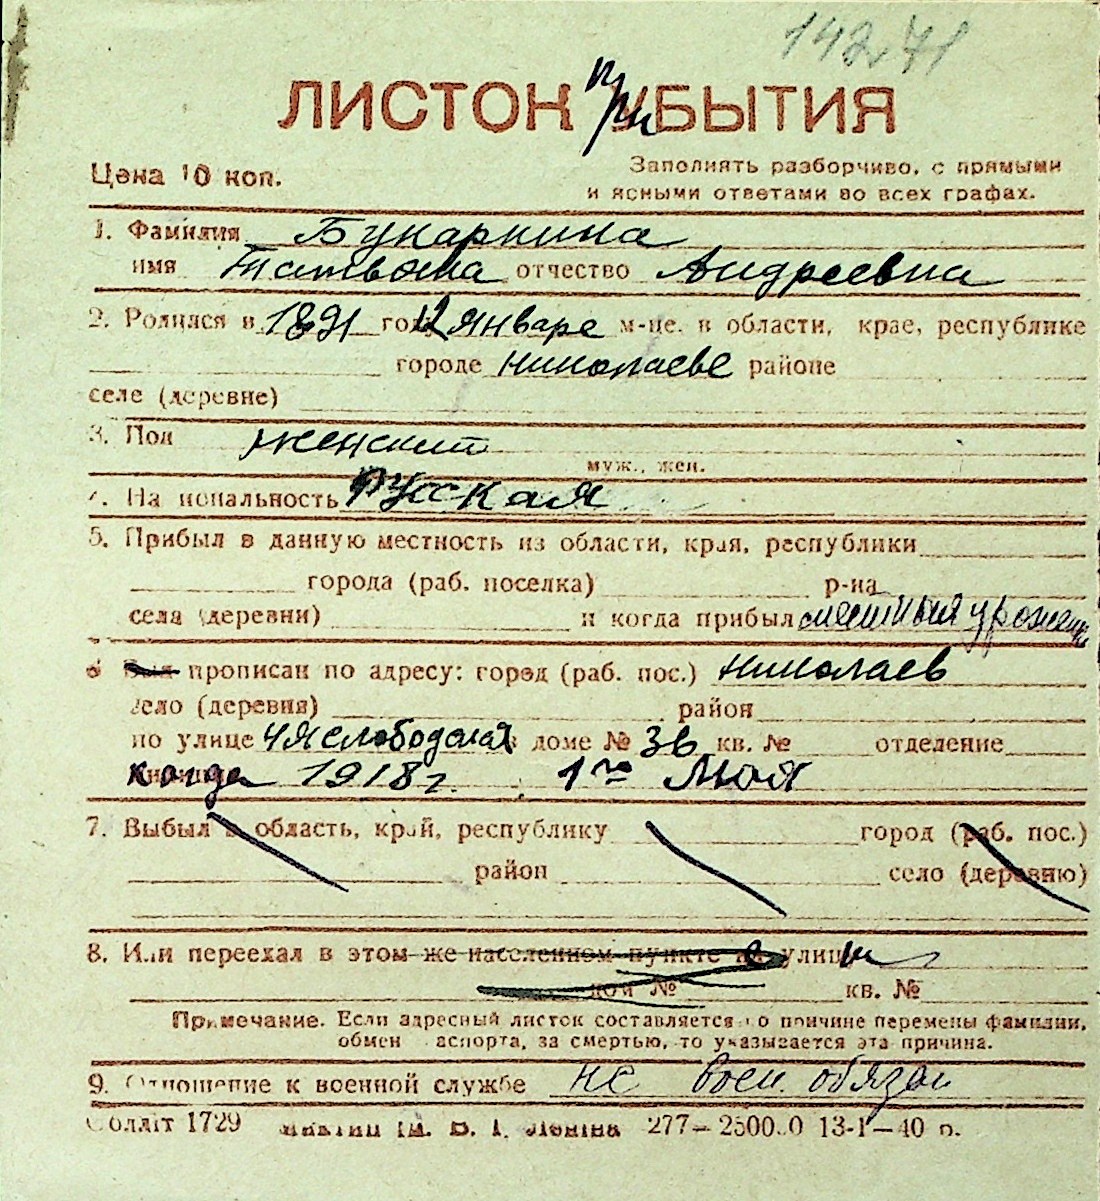 142.71
ЛИСТОК прибЫТИЯ
Цена 10 коп.
Заполнять разборчиво, с прямыми
и ясными ответами во всех графах.
1. Фамилия Букаркина
имя Татьяна отчество Андреевна
2. Родился в 1891 год 12 январе м-це. в области, крае, республике
городе Николаеве районе
селе (деревне)
3. Пол женский
муж., жен.
4. На иональность Русская
5. Прибыл в данную местность из области, края, республики
города (раб. поселка) р-на
села (деревни) и когда прибыл местный урожен
прописан по адресу: город (раб. пос.) Николаев
село (деревня) район
по улице 4я слободская в доме № 36 кв. № отделение
когда 1918 г. 1го Мая
7. Выбыл в область, край, республику город (раб. пос.)
район село (деревню)
8. Или переехал в этом же населенном пункте на улицы
дом № кв. №
Примечание. Если адресный листок составляется по причине перемены фамилии,
обмен паспорта, за смертью, то указывается эта причина.
9. Отношение к военной службе не воен. обязан
1729 277—2500.0 13-I—40 р.